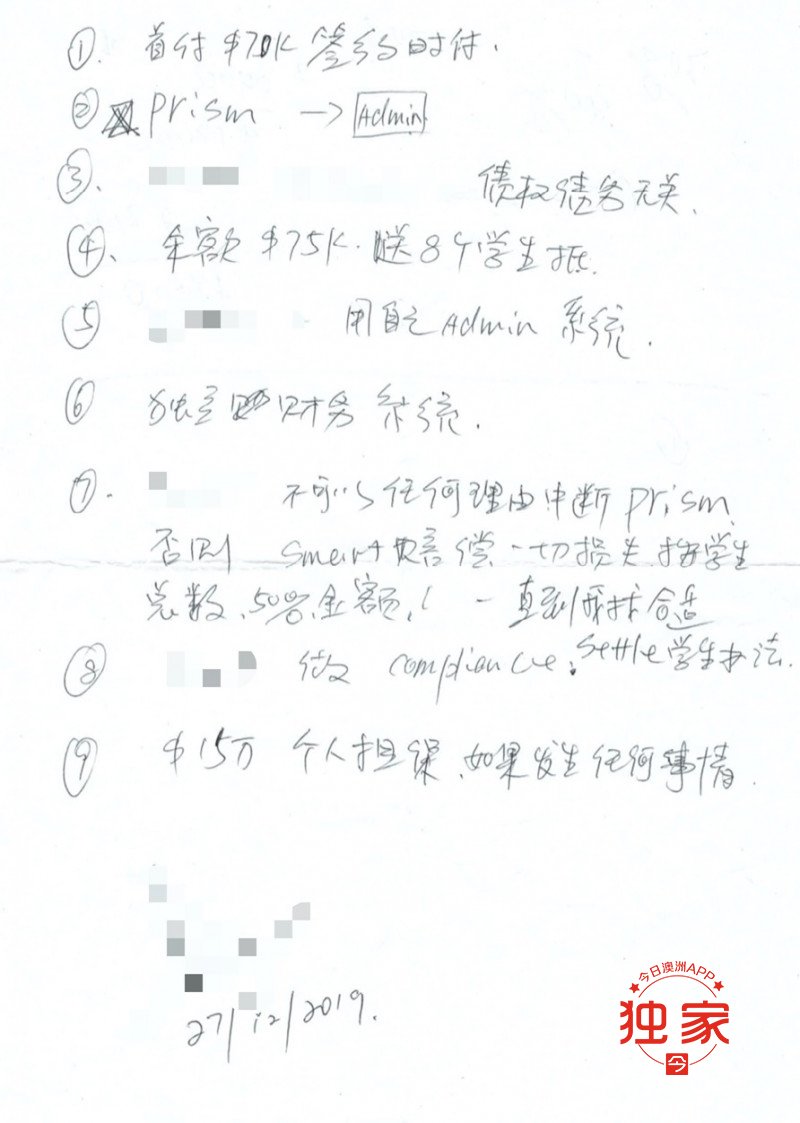 ①. 首付 $70K 签约时付.
② Prism → Admin
③. 债权债务无关.
④. 余额 $75K. 送8个学生抵.
⑤ 用自己Admin 系统.
⑥ 独立 财务 系统.
⑦. 不可以任何理由中断prism.
否则 Smart 赔偿一切损失 按学生
总数、50% 金额, 一直到 合适
⑧ 做 compliance; settle学生办法.
⑨ $15万 个人担保、如果发生任何事情.
27/12/2019.
今日澳洲APP
独家
今